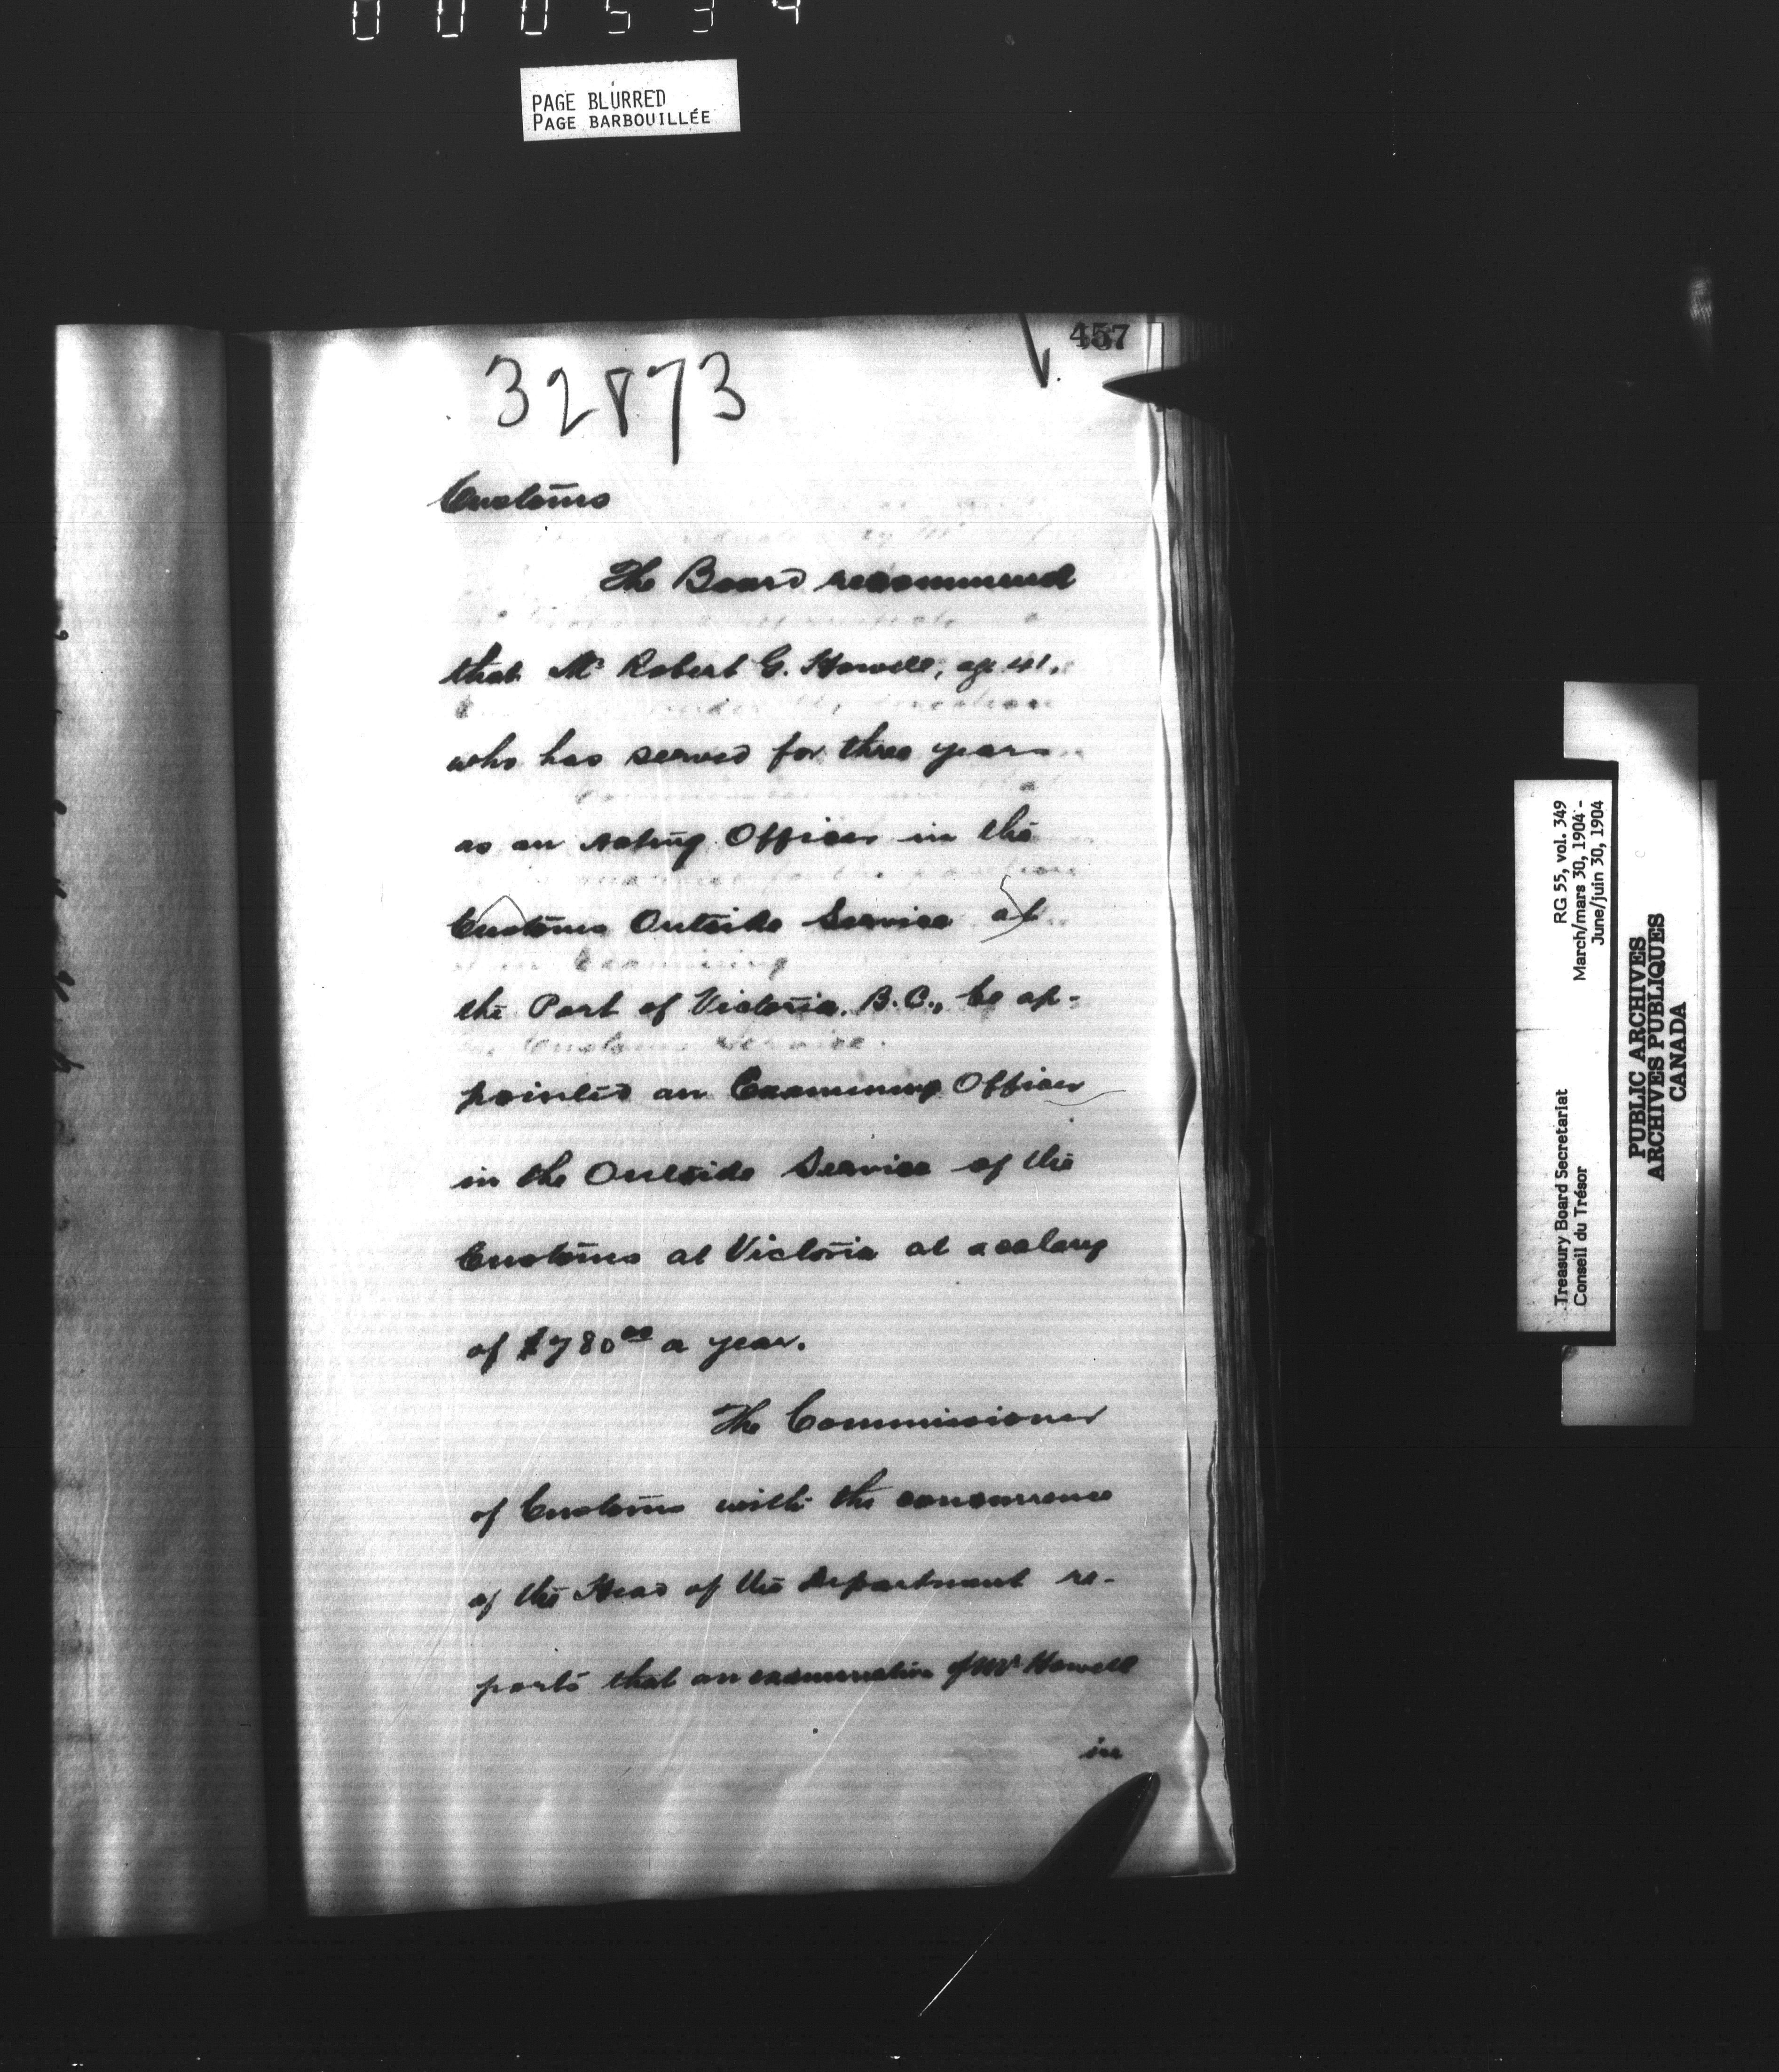 000534
PAGE BLURRED
PAGE BARBOUILLÉE
457
32873
Customs
The Board recommend
that Mr Robert G. Howell, age 41,
who has served for three years
as an Acting Officer in the
Customs Outside Service at
the Port of Victoria, B.C., be ap-
pointed an Examining Officer
in the Outside Service of the
Customs at Victoria at a salary
of $780 00 a year.
The Commissioner
of Customs with the concurrence
of the Head of the Department re-
ports that an examination of Mr Howell
in
Treasury Board Secretariat RG 55, vol. 349
Conseil du Trésor March/mars 30, 1904 -
June/juin 30, 1904
PUBLIC ARCHIVES
ARCHIVES PUBLIQUES
CANADA